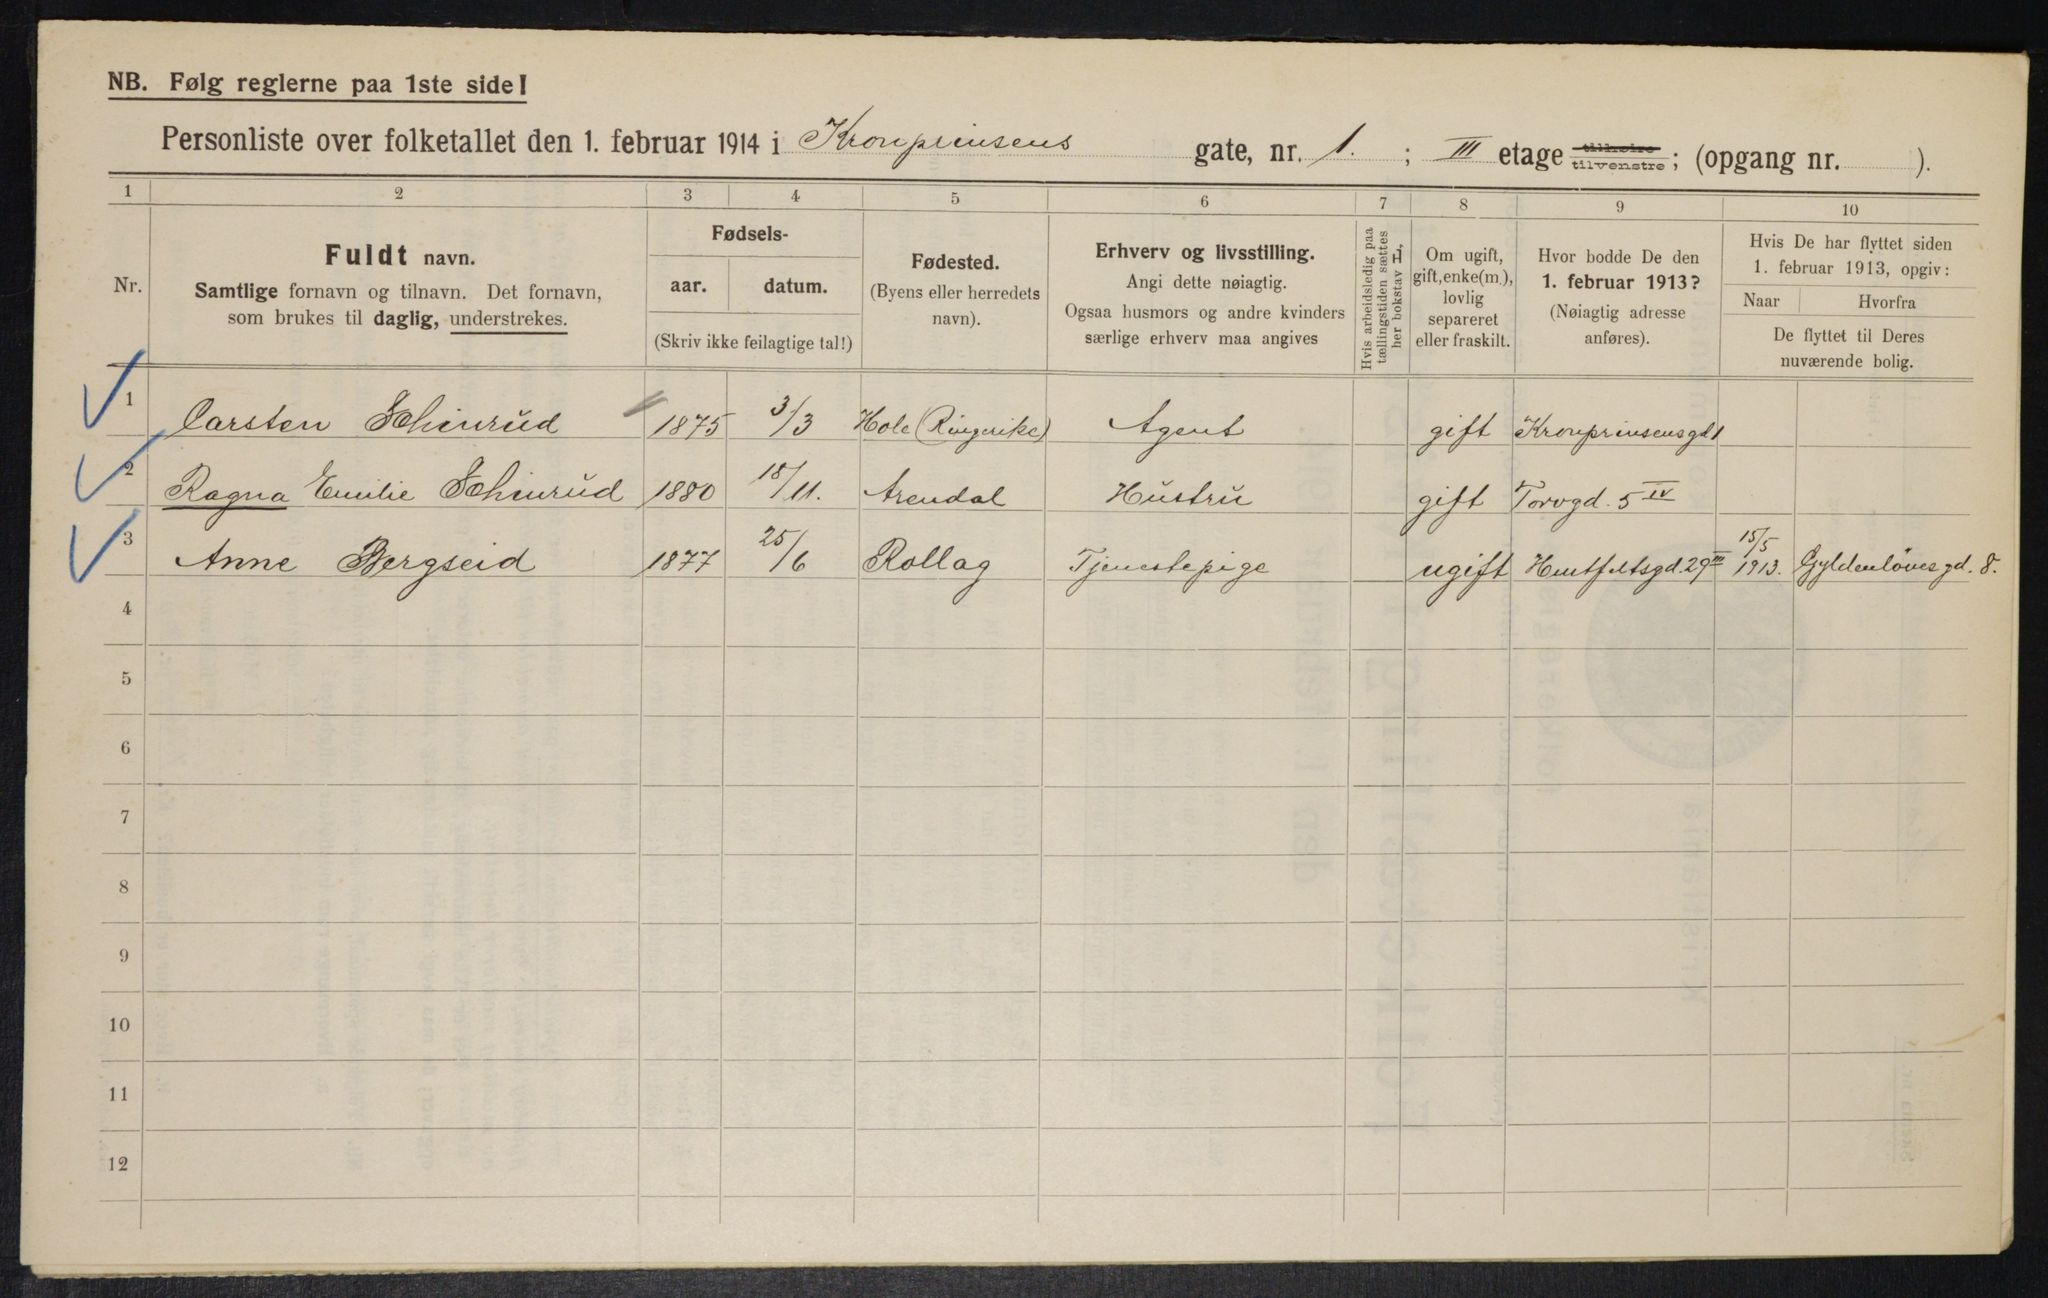 NB. Følg reglerne paa 1ste side!
Personliste over folketallet den 1. februar 1914 i Kronprinsens gate, nr. 1. ; III etage tilhøire tilvenstre; (opgang nr. ).
1 2 3 4 5 6 7 8 9 10
Nr.
Fuldt navn.
Samtlige fornavn og tilnavn. Det fornavn,
som brukes til daglig, understrekes.
Fødsels-
aar. datum.
(Skriv ikke feilagtige tal!)
Fødested.
(Byens eller herredets
navn).
Erhverv og livsstilling.
Angi dette nøiagtig.
Ogsaa husmors og andre kvinders
særlige erhverv maa angives
Hvis arbeidsledig paa
tællingstiden sættes
her bokstav L,
Om ugift,
gift, enke(m.),
lovlig
separeret
eller fraskilt.
Hvor bodde De den
1. februar 1913?
(Nøiagtig adresse
anføres).
Hvis De har flyttet siden
1. februar 1913, opgiv:
Naar Hvorfra
De flyttet til Deres
nuværende bolig.
1 Carsten Schinrud 1875 3/3 Hole (Ringerike) Agent gift Kronprinsensgd 1
2 Ragna Emilie Schinrud 1880 18/11. Arendal Hustru gift Torvgd. 5 IV
3 Anne Bergseid 1877 25/6 Rollag Tjenestepige ugift Huitfeltsgd. 29 III 15/5 1913. Gyldenløvesgd. 8.
4
5
6
7
8
9
10
11
12